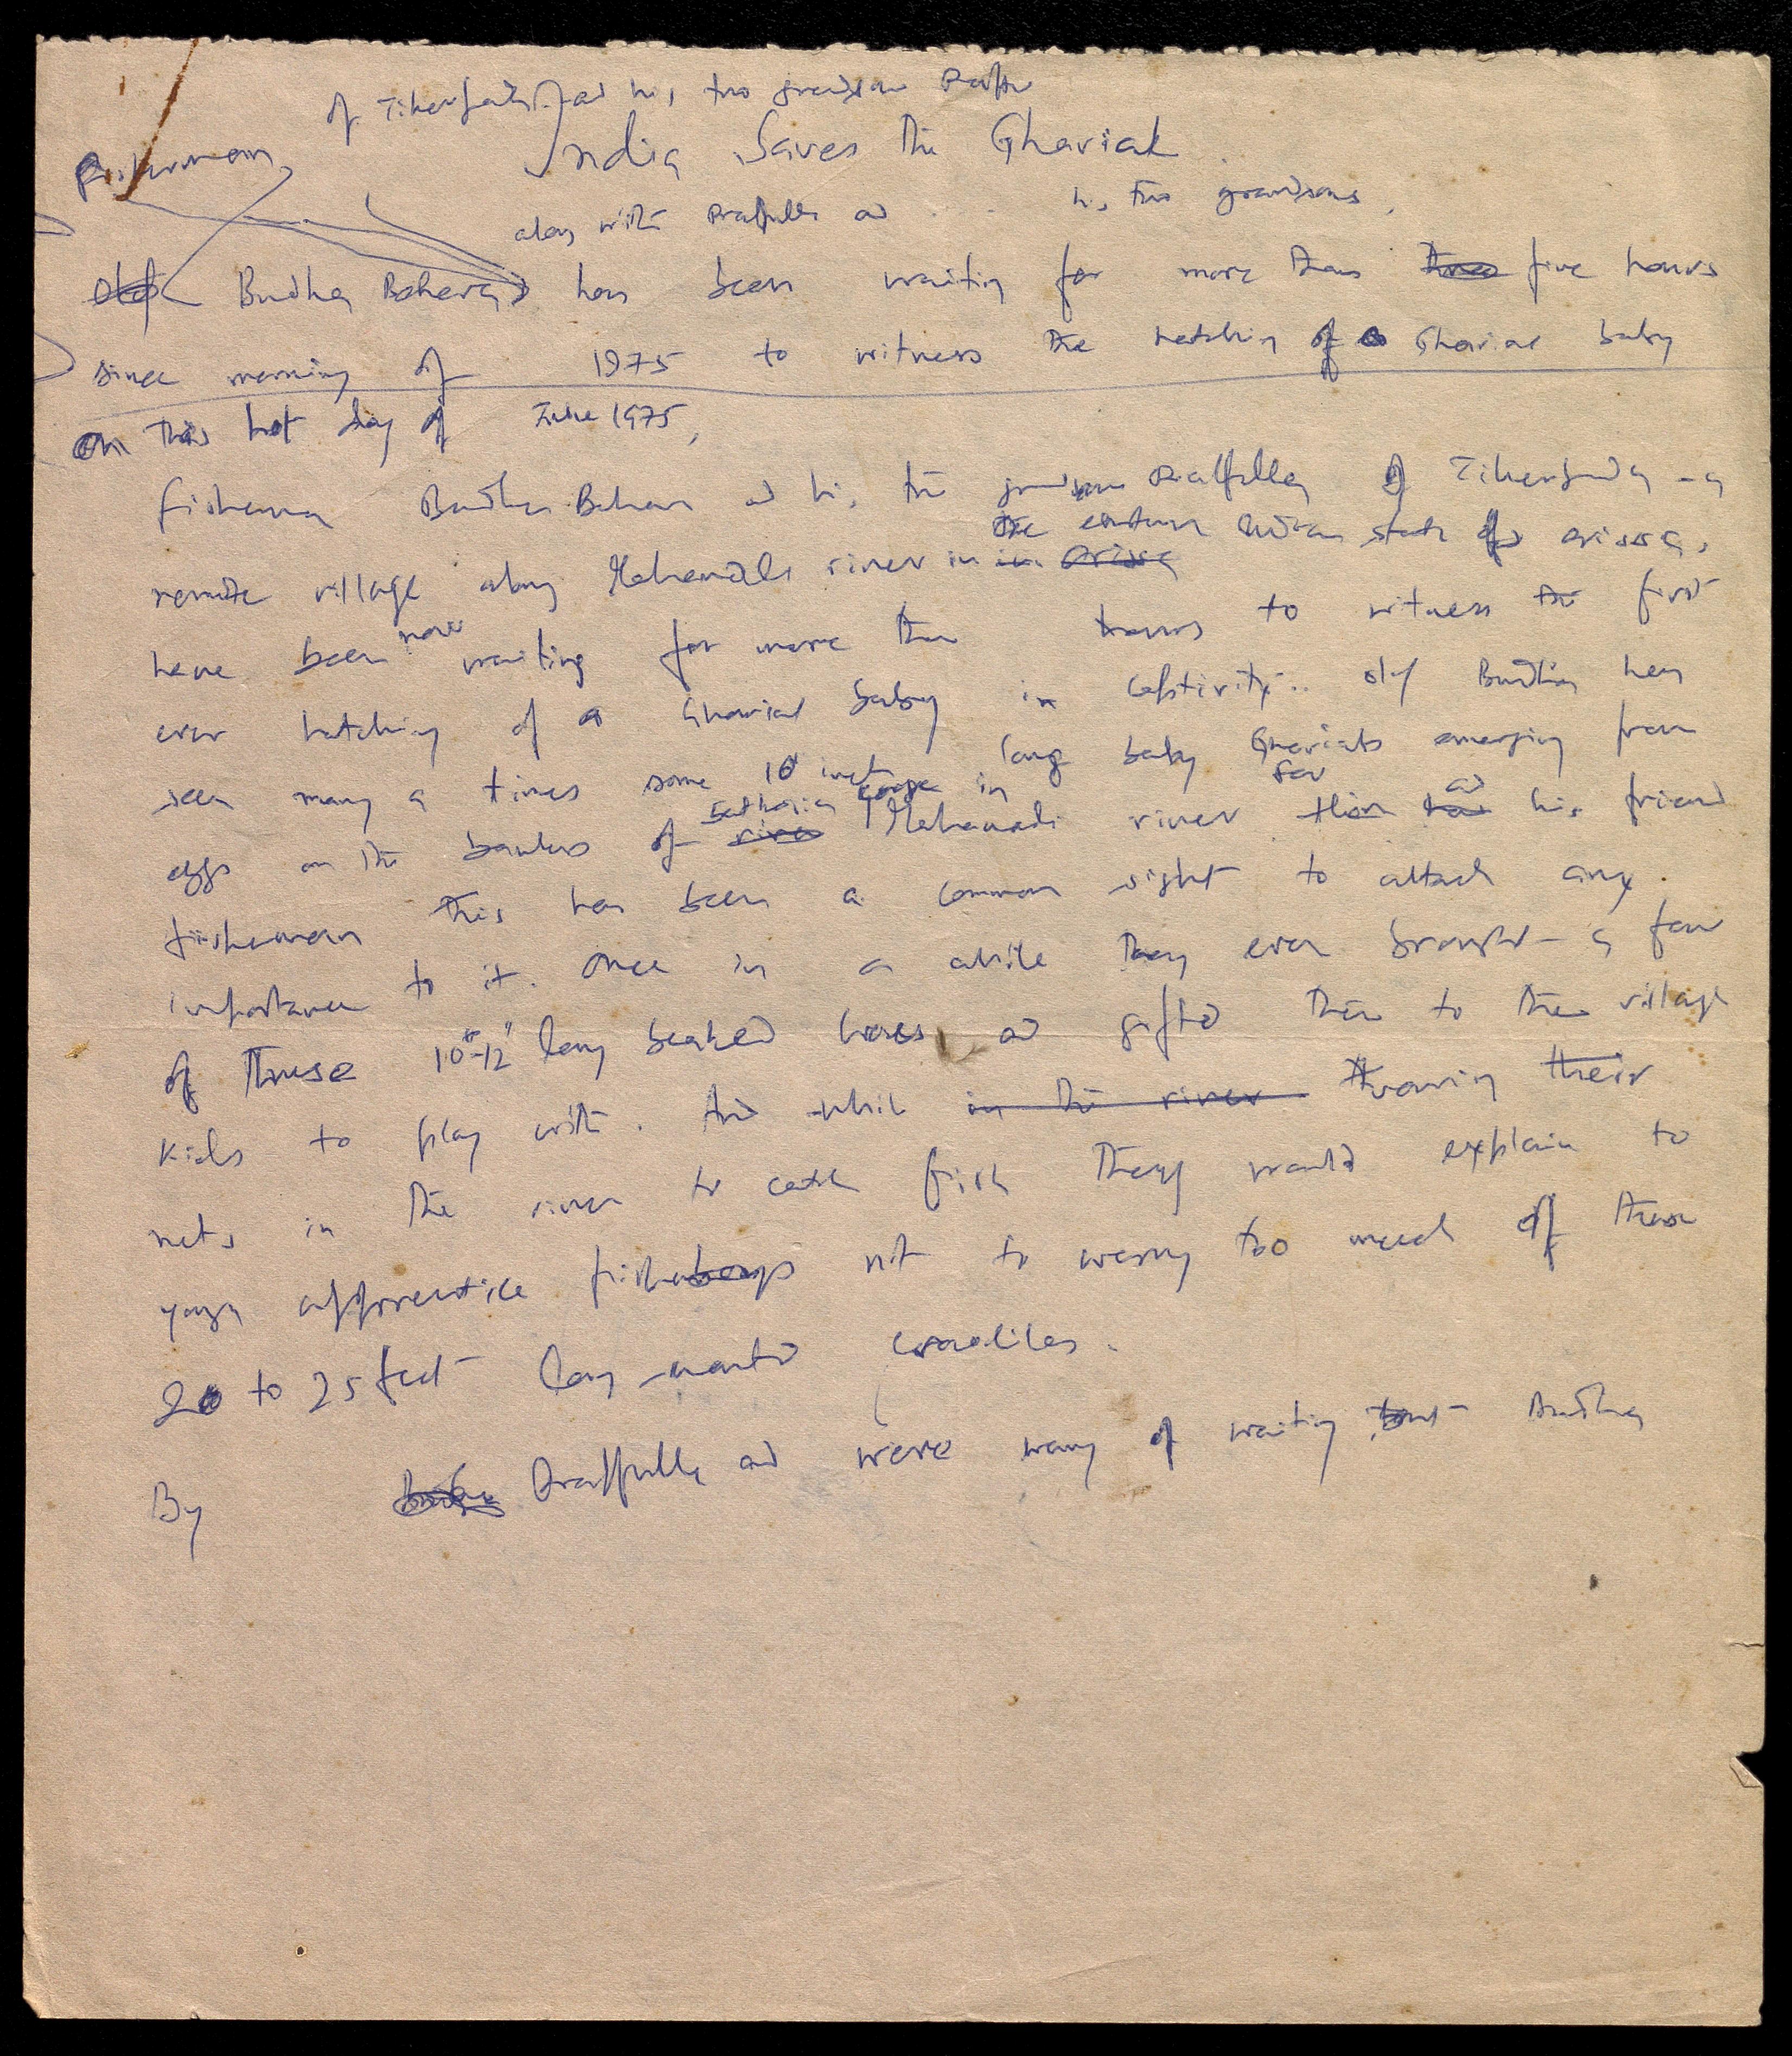 of Tikerpada and his two grandson
India Saves the Gharial
Fisherman,
along with Prafulla and his two grandsons,
Budha Behera has been waiting for more than three five hours
since morning of 1975 to witness the hatching of a Gharial baby
On this hot day of June 1975,
fisherman Budha Behera and his two grandsons Prafulla of Tikerpada - a
the eastern Indian state of orissa,
remote village along Mahanadi river in in orissa
have been now waiting for more than hours to witness the first
ever hatching of a Gharial baby in captivity.. old Budha has
seen many a times some 10 inch long baby Gharials emerging from
eggs on the banks of Satkosia gorge in river Mahanadi river for and his friend
fisherman this has been a common sight to attach any
importance to it. Once in a while they even brought a few
of these 10"-12" long beaked ones and gifted them to the village
kids to play with. And while in the river throwing their
nets in the river to catch fish they would explain to
young apprentice fisherboys not to worry too much of these
20 to 25 feet long snouted crocodiles.
By Prafulla and were wary of waiting but Budha